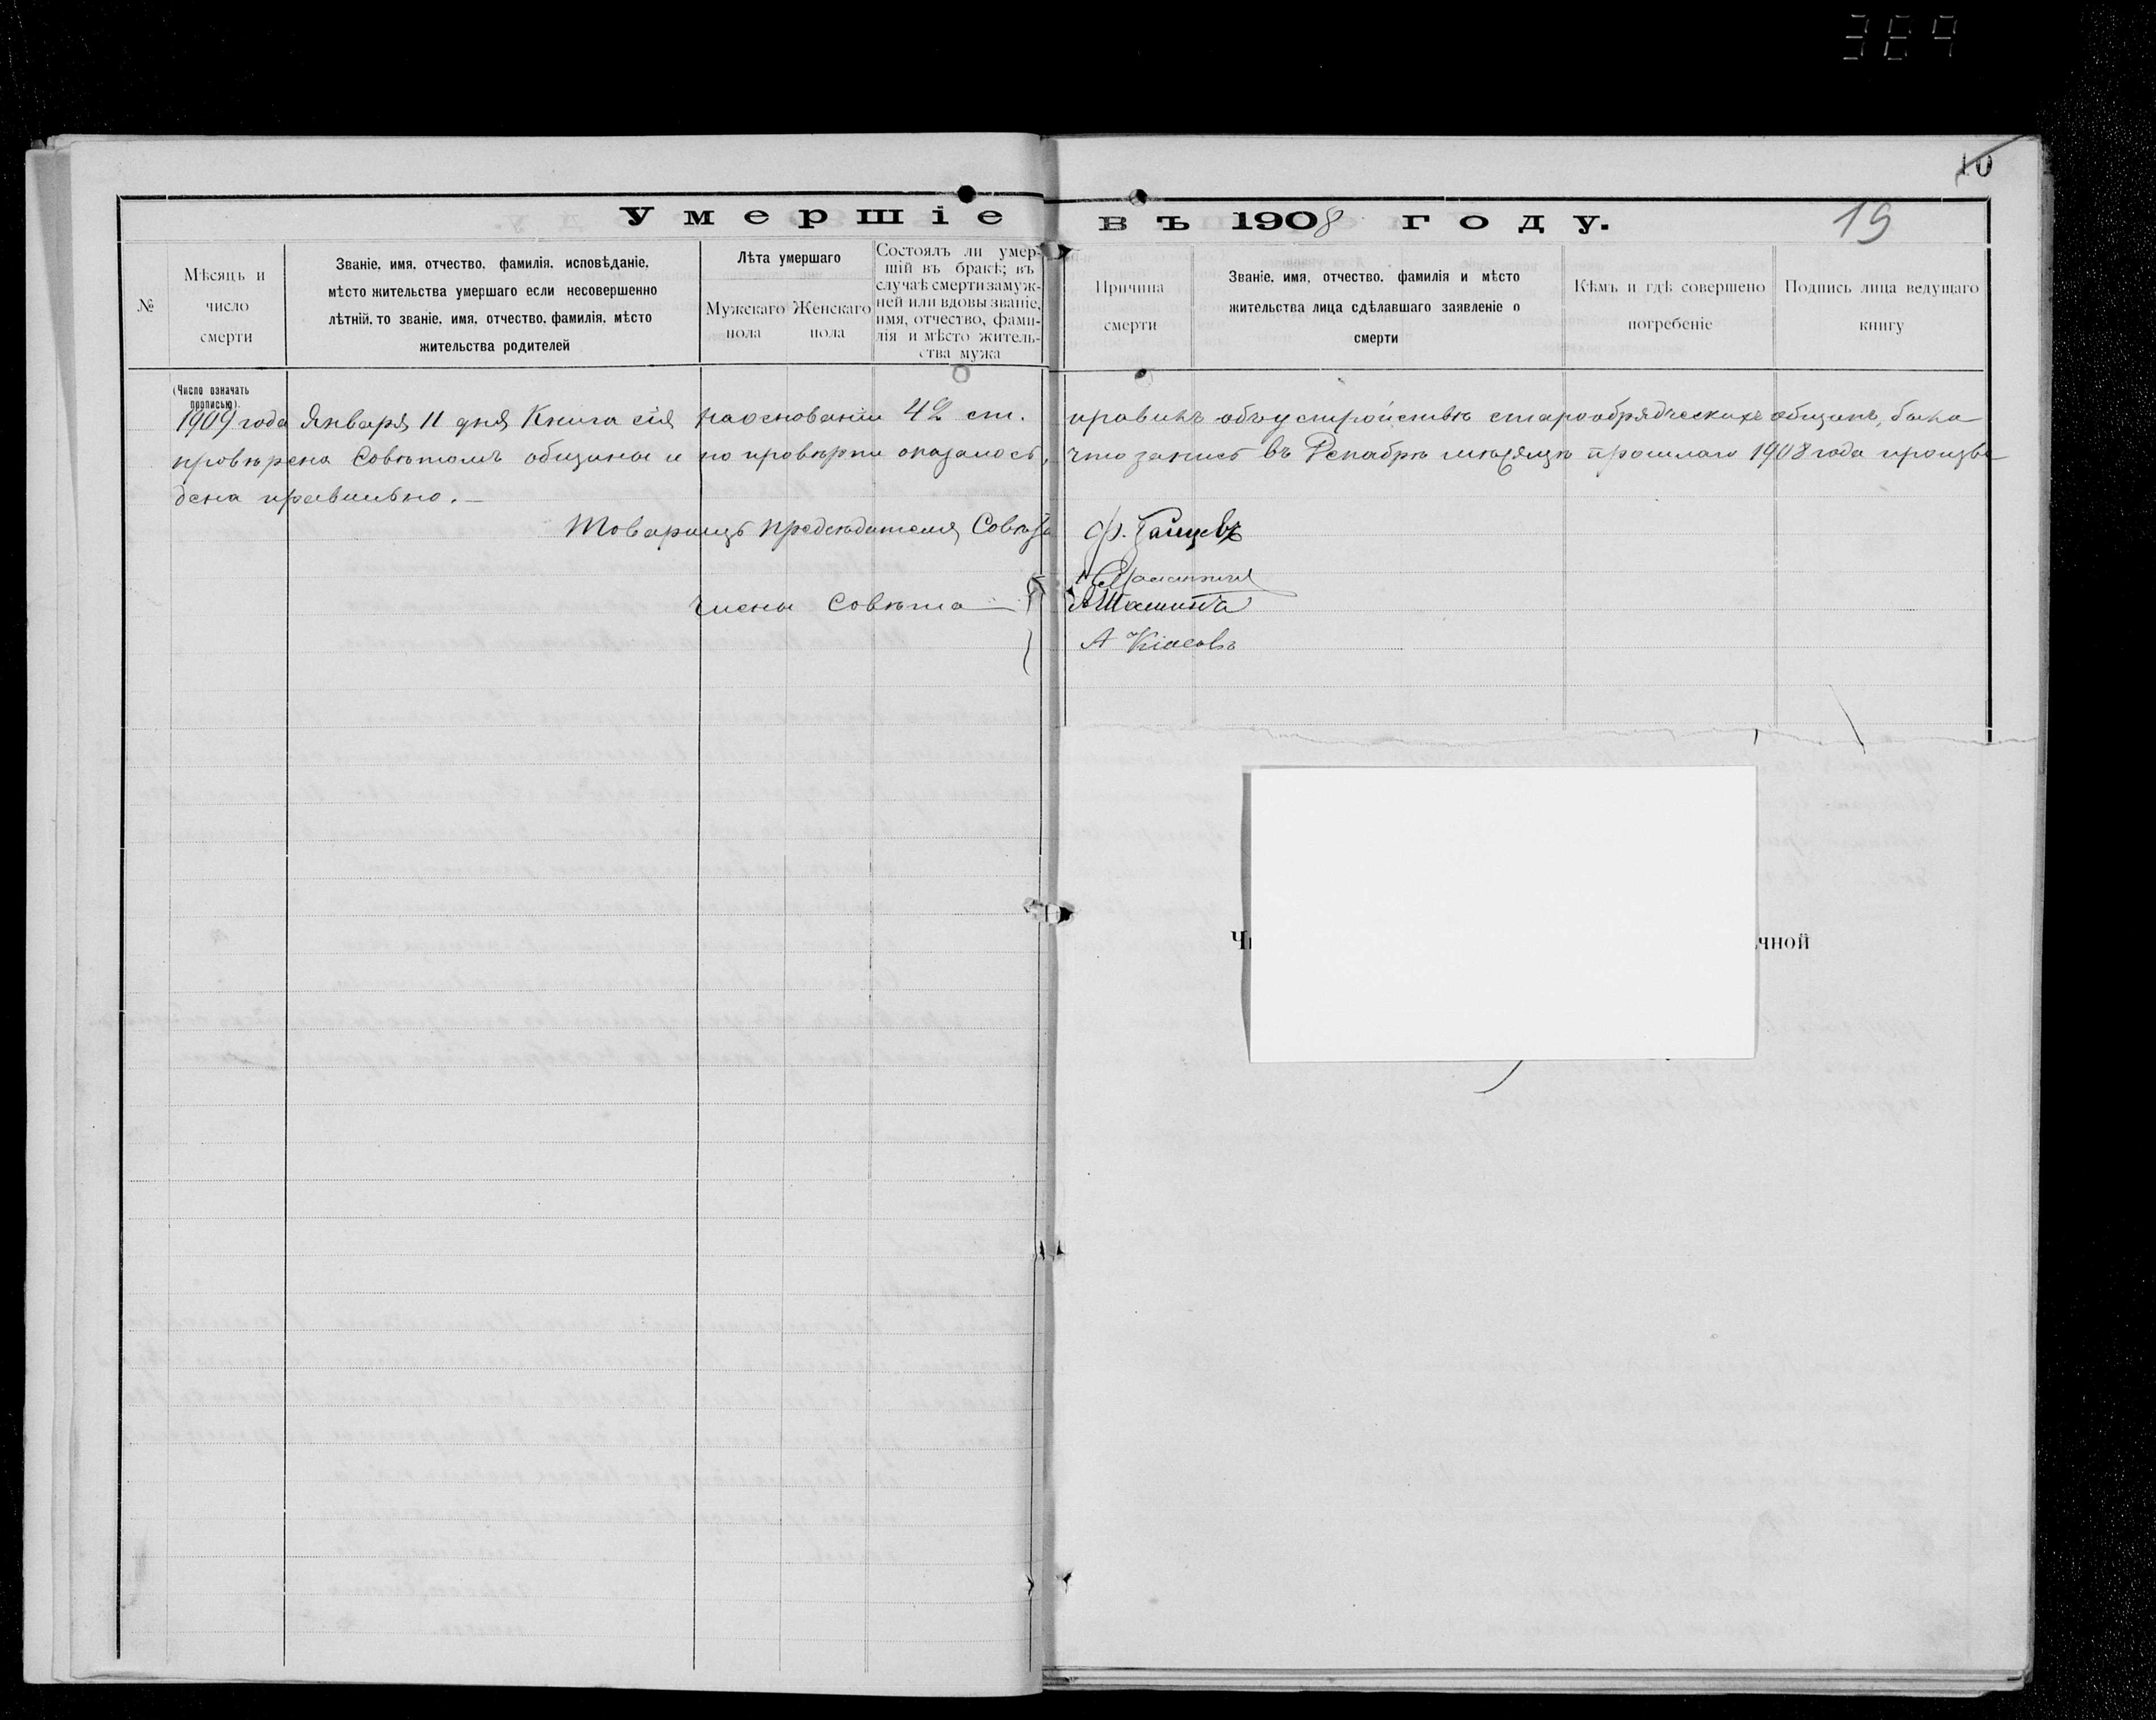 369
10
Умершіе въ 1908 году.
19
№
Мѣсяць и
число
смерти
Званіе, имя, отчество, фамилія, исповѣданіе,
мѣсто жительства умершаго если несовершенно
лѣтній, то званіе, имя, отчество, фамилія, мѣсто
жительства родителей
Лѣта умершаго
Мужскаго
пола
Женскаго
пола
Состоялъ ли умер-
шій въ бракѣ; въ
случаѣ смерти замуж-
ней или вдовы званіе,
имя, отчество, фами-
лія и мѣсто житель-
ства мужа
Причина
смерти
Званіе, имя, отчество, фамилія и мѣсто
жительства лица сдѣлавшаго заявленіе о
смерти
Кѣмъ и гдѣ совершено
погребеніе
Подпись лица ведущаго
книгу
(Число означать
прописью).
1909 года Января 11 дня Книга сія на основаніи 42 ст. правилъ объ устройствѣ старообрядческихъ общинъ, была
провѣрена Совѣтомъ общины и по провѣрки оказалось, что запись въ Декабрѣ мѣсяцѣ прошлаго 1908 года произве
дена правильно.
Товарищъ Предсѣдателя Совѣта Ф.
Члены Совѣта
А
чной